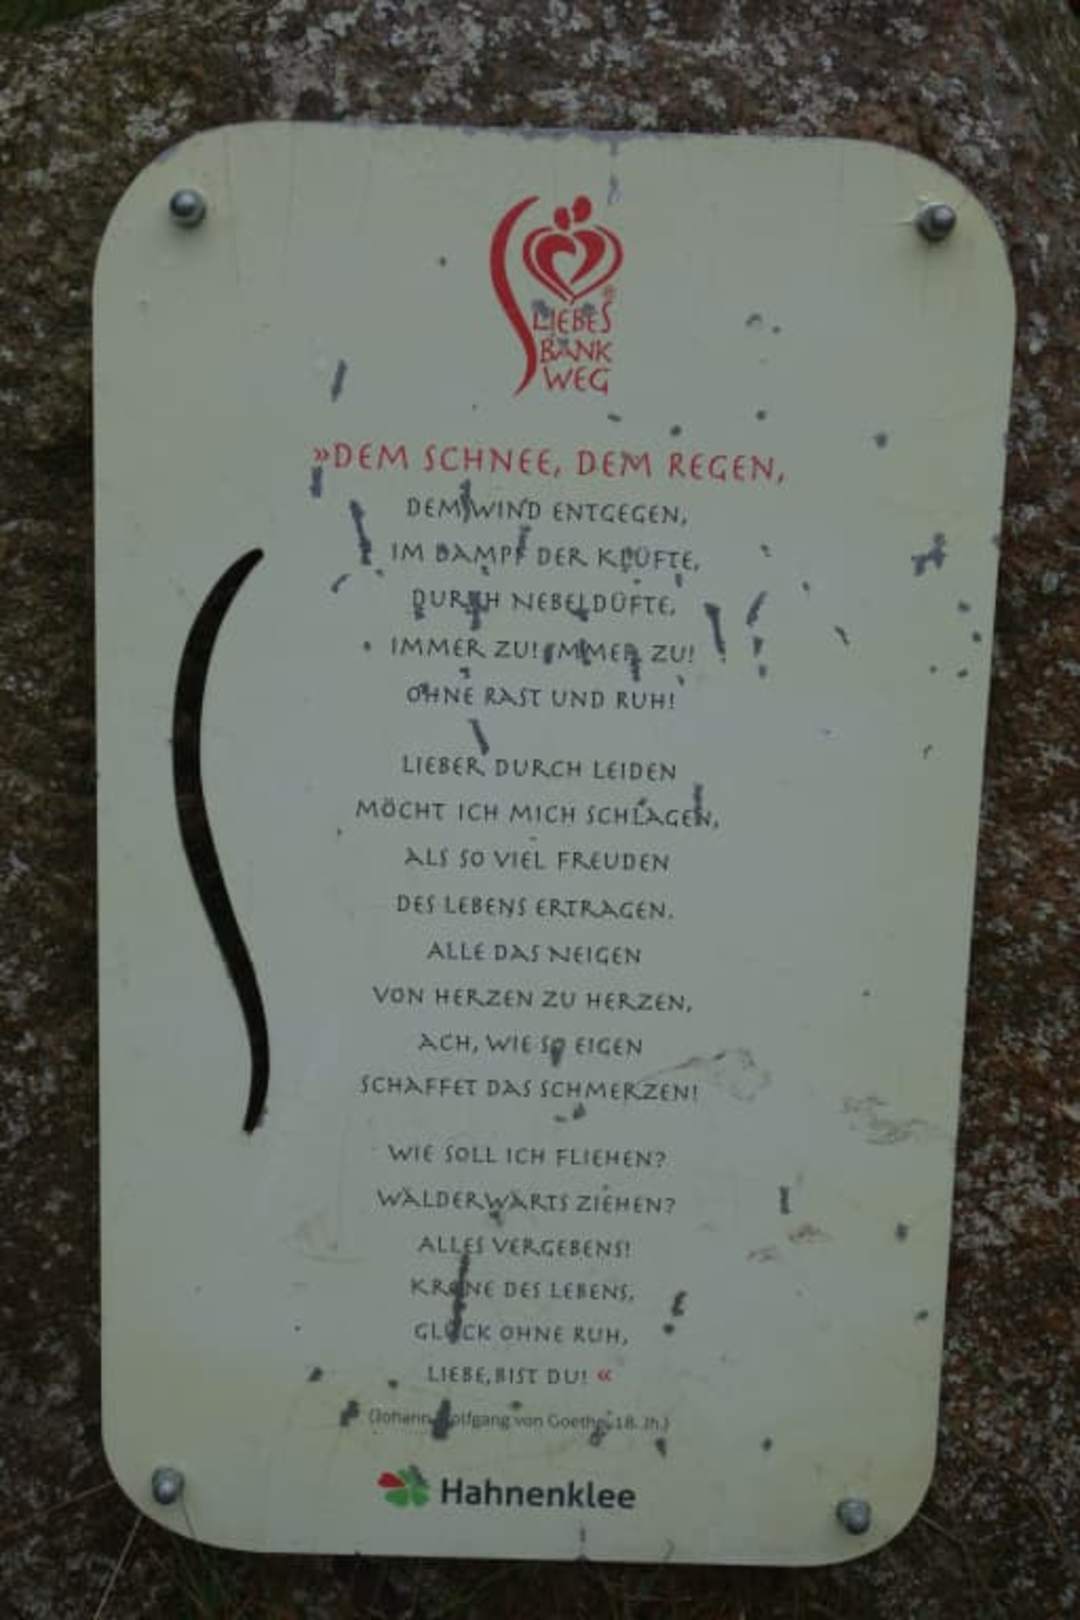 LIEBES
BANK
WEG
»DEM SCHNEE, DEM REGEN,
DEM WIND ENTGEGEN,
IM DAMPF DER KLÜFTE,
DURCH NEBELDÜFTE,
IMMER ZU! IMMER ZU!
OHNE RAST UND RUH!
LIEBER DURCH LEIDEN
MÖCHT ICH MICH SCHLAGEN,
ALS SO VIEL FREUDEN
DES LEBENS ERTRAGEN.
ALLE DAS NEIGEN
VON HERZEN ZU HERZEN,
ACH, WIE SO EIGEN
SCHAFFET DAS SCHMERZEN!
WIE SOLL ICH FLIEHEN?
WÄLDERWÄRTS ZIEHEN?
ALLES VERGEBENS!
KRONE DES LEBENS,
GLÜCK OHNE RUH,
LIEBE, BIST DU! «
(Johann Wolfgang von Goethe, 18. Jh.)
Hahnenklee